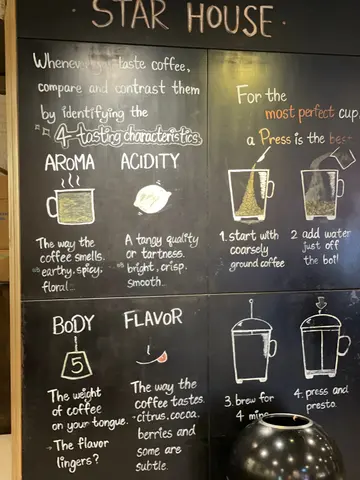 · STAR HOUSE ·
Whenever you taste coffee,
compare and contrast them
by identifying the
4 tasting characteristics
AROMA
The way the
coffee smells.
earthy, spicy,
floral...
ACIDITY
A tangy quality
or tartness.
bright, crisp.
smooth...
BODY
5
The weight
of coffee
on your tongue.
The flavor
lingers?
FLAVOR
The way the
coffee tastes.
citrus, cocoa.
berries and
some are
subtle.
For the
most perfect cup,
a Press is the best
1. start with
coarsely
ground coffee
2 add water
just off
the boil
3. brew for
4 mins
4. press and
presto.